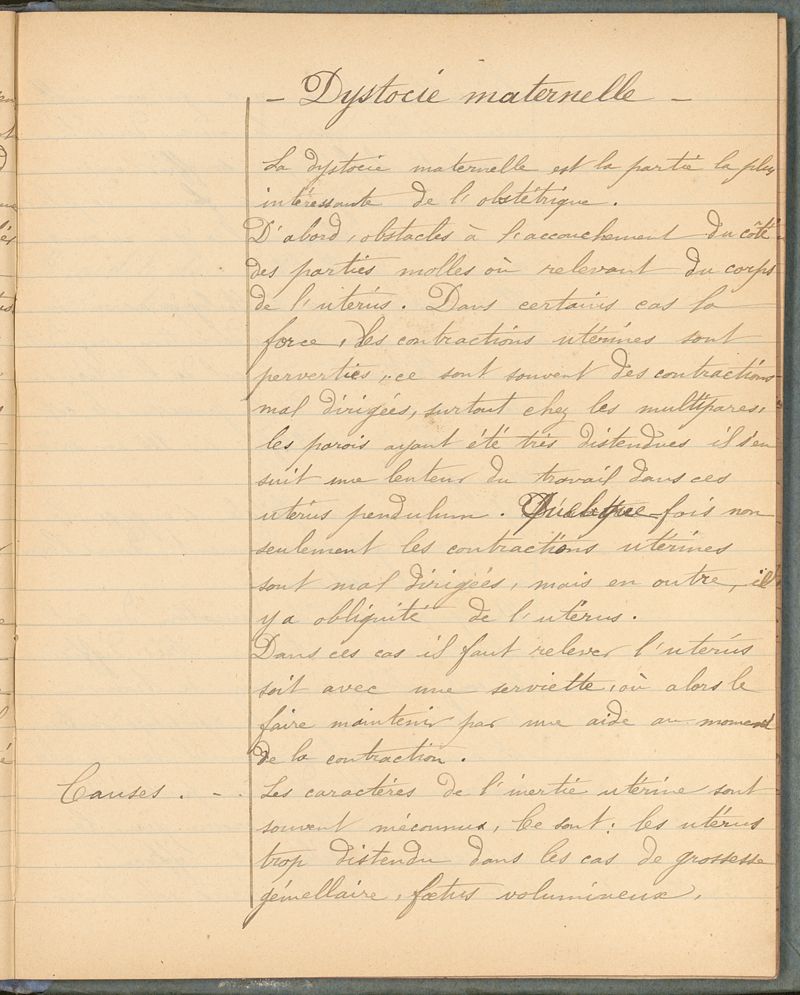 - Dystocie maternelle -
La dystocie maternelle est la partie la plus
intéressante de l'obstétrique.
D'abord, obstacles à l'accouchement du côté
des parties molles où relevant du corps
de l'utérus. Dans certains cas la
force, des contractions utérines sont
perverties, ce sont souvent des contractions
mal dirigées, surtout chez les multipares,
les parois ayant été très distendues il s'en
suit une lenteur du travail dans ces
utérus pendulum. Quelque-fois non
seulement les contractions utérines
sont mal dirigées, mais en outre, il
y a obliquité de l'utérus.
Dans ces cas il faut relever l'utérus
soit avec une serviette, où alors le
faire maintenir par une aide au moment
de la contraction.
Causes . - . Les caractères de l'inertie utérine sont
souvent méconnus, Ce sont: les utérus
trop distendu dans les cas de grossesse
gémellaire, fœtus volumineux,